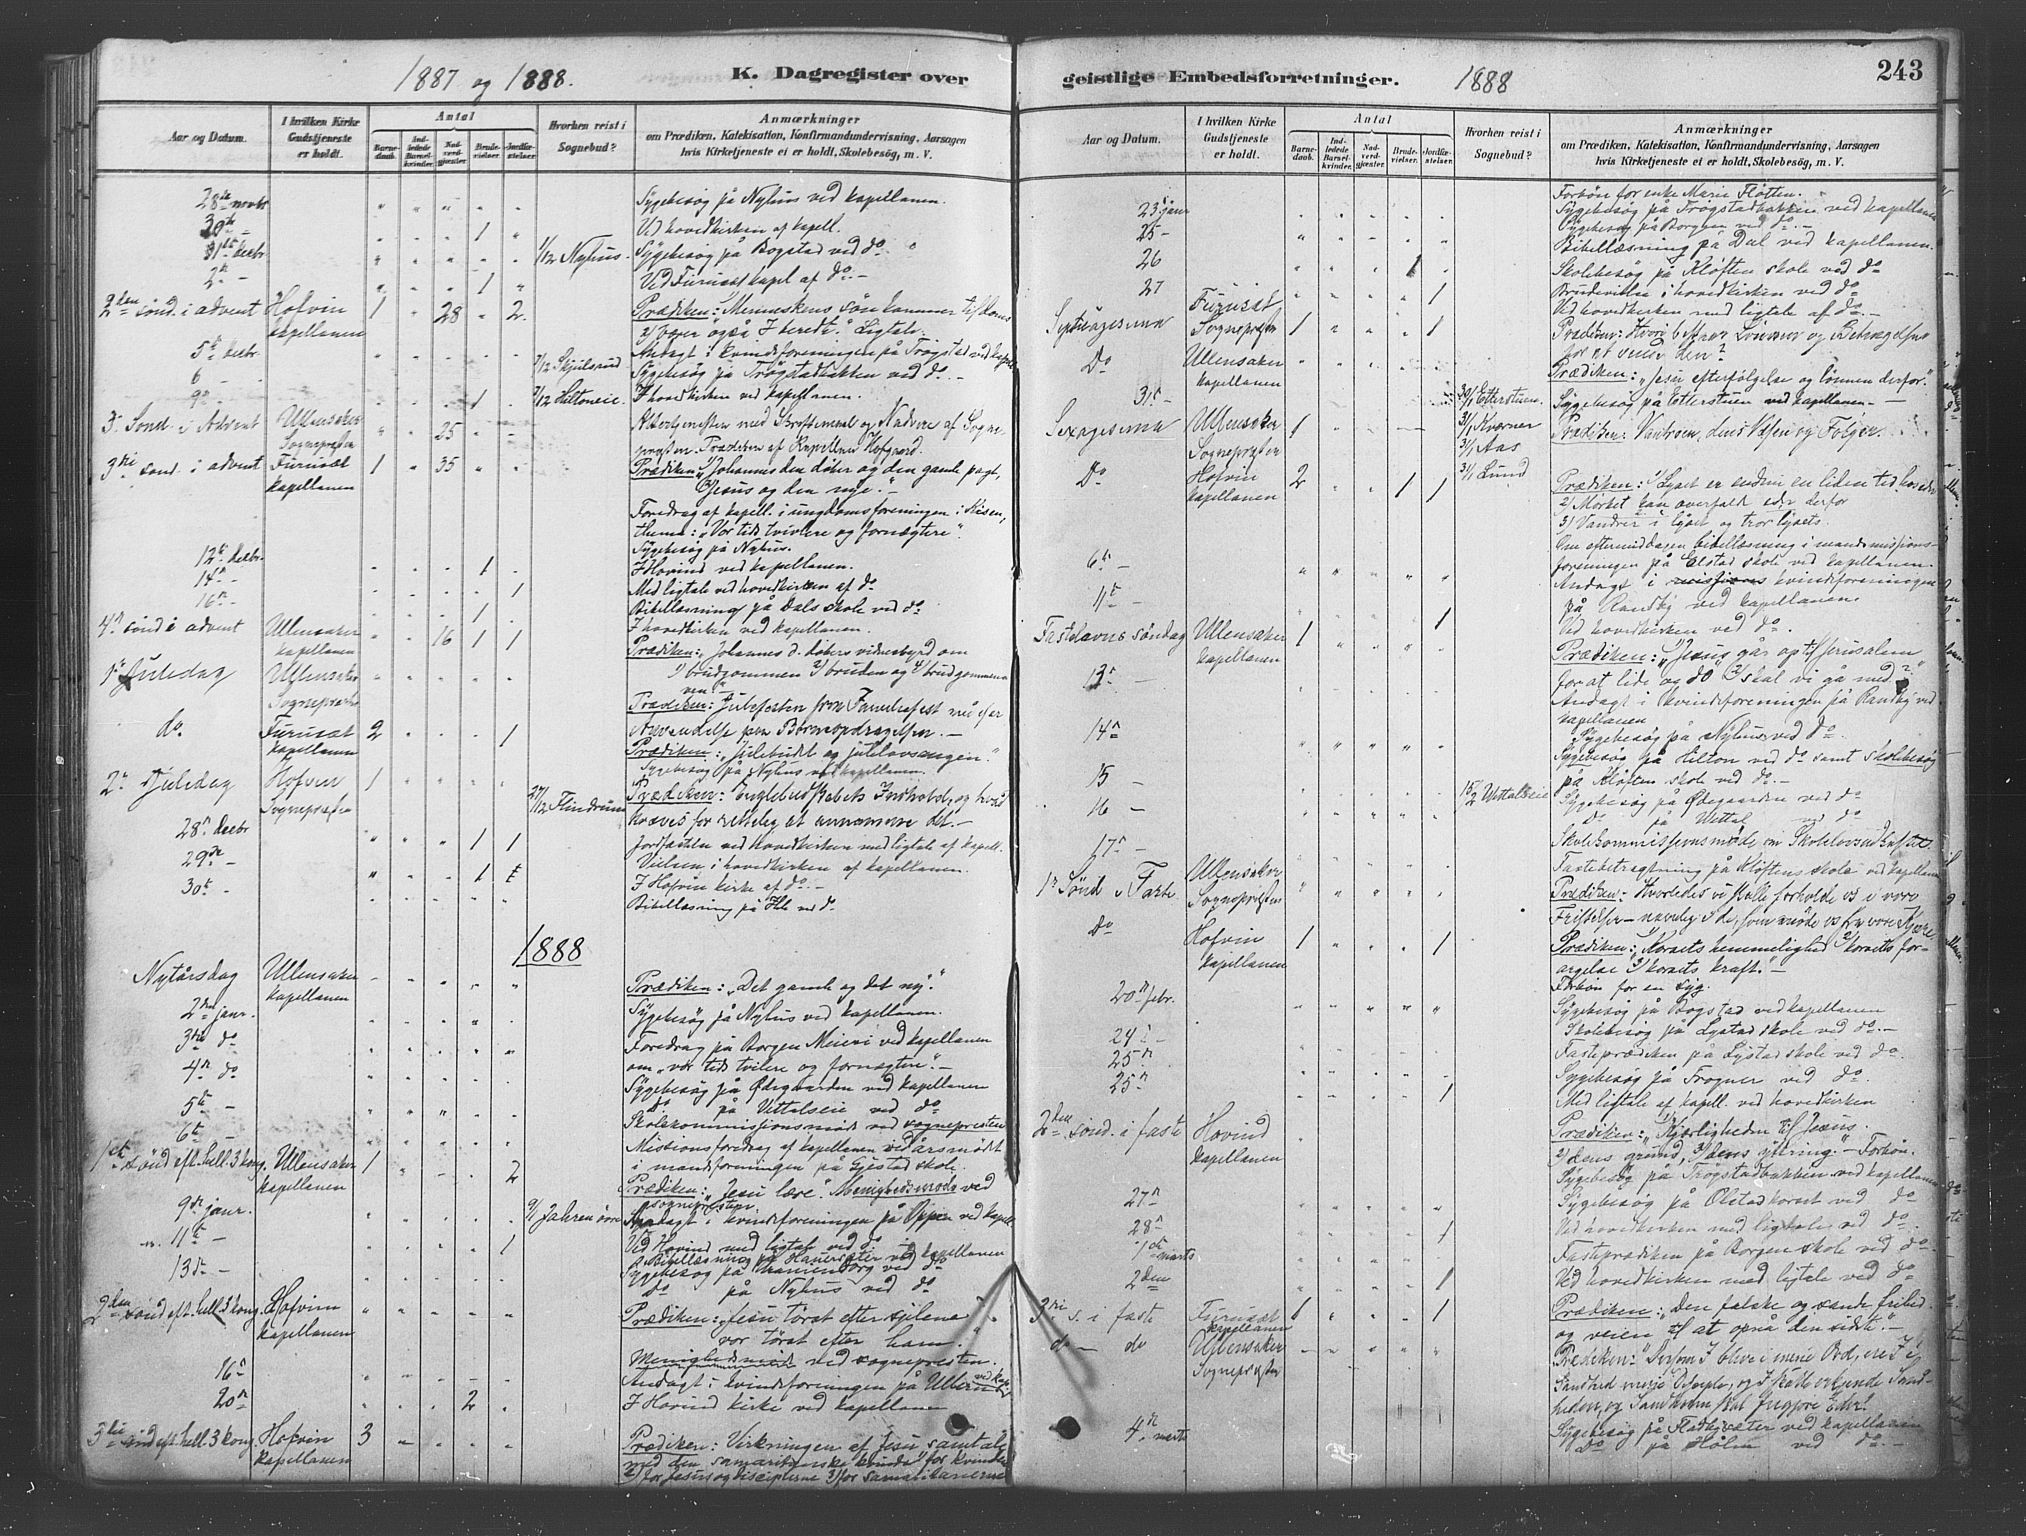 1887 og 1888.
K. Dagregister over
Aar og Datum.
I hvilken Kirke Gudstjeneste er holdt.
Antal
Barnedaab.
Indledede Barselkvinder.
Nadverdgjæster.
Brudevielser.
Jordfæstelser.
Hvorhen reist i Sognebud?
Anmærkninger
om Prædiken, Katekisation, Konfirmandundervisning, Aarsagen
hvis Kirketjeneste ei er holdt, Skolebesøg, m. V.
28de novbr Sygebesøg på Nyhus ved kapellanen.
30te - 1 Ved hovedkirken af kapell.
1/12 Nyhus. Sygebesøg på Bogstad ved do
2n - 1 Ved Furuset kapel af do. -
2den sønd. i advent Hofvin 1 28 2 Prædiken: Menneskens søn kommer til doms
kapellanen
5te decbr Andagt i kvindeforeningen på Trøgstad ved kapell.
6 - Sygebesøg på Trøgstadbakken ved do -
9de 1 7/12 Hiltoneie. I hovedkirken ved kapellanen.
3. Sønd. i Advent Ullensaker 25 Altertjenesten med Skriftemaal og Nadvere af Sogne-
Sognepresten presten. Prædiken af Kapellan Hofgaard.
3die sønd. i advent Furuset 1 35 Prædiken: "Johannes den døber og den gamle pagt,
kapellanen Jesus og den nye." -
Foredrag af kapell. i ungdomsforeningen i Kisen,
thema: "Vor tids tvivlere og fornægtere".
Sygebesøg på Nyhus.
12te decbr 1 I Hovind ved kapellanen.
14de - 1 Med ligtale ved hovedkirken af do
16de - Bibellæsning på Dals skole ved do
1 I hovedkirken ved kapellanen.
4de sønd i advent Ullensaker 16 1 1 Prædiken: "Johannes d. døbers vidnesbyrd om
kapellanen 1/ brudgommen 2/ bruden og 3/ brudgommens
ven".
1ste Juledag Ullensaker Prædiken: Julefesten som Familiefest med
Sognepresten Anvendelse paa Børneopdragelsen. -
do. Furuset 2 1 Prædiken: "Julebudet og jullovsangen."
kapellanen Sygebesøg på Nyhus ved kapellanen.
2n Juledag Hofvin 1 27/12 Flindrum Prædiken: Englebudskabets Indhold, og hvad
Sognepresten kræves for rettelig at annamme det. -
28de decbr 1 1 Jordfæsten ved hovedkirken med ligtale af kapell.
29de - Vielsen i hovedkirken af kapellanen.
30te - 1 1 I Hofvin kirke af do. -
Bibellæsning på ved do
1888
Nytårsdag Ullensaker Prædiken: "Det gamle og det ny". -
kapellanen
2den janr. Sygebesøg på Nyhus ved kapellanen.
3die do Foredrag på Borgen Meieri ved kapellanen
om "vor tids tvilere og fornægtere". -
4de do Sygebesøg på Ødegaarden ved kapellanen
5te - do på Vittalseie ved do
Skolekommissionsmøde ved sognepresten
6te - Missionsforedrag af kapellanen ved årsmødet
i mandsforeningen på Gjestad skole.
1ste sønd eft. hell. 3 kong. Ullensaker 1 2 Prædiken: "Jesu lære". Menighedsmøde ved
kapellanen sognepresten.
9de janr. 9/1 Jahren øvre Andagt i kvindeforeningen på ved kapell.
11te - 1 Ved Hovind med ligtale ved do
Bibellæsning på Hauerseter ved kapellanen
13de - Sygebesøg på ved do
do på Nyhus ved do
2den sønd eft. hell. 3 kong. Hofvin Prædiken: "Jesu tørst efter sjelene
kapellanen vor tørst efter ham."
16de Menighedsmøde ved sognepresten.
Andagt i kvindeforeningen på ved kap.
20de 2 I Hovind kirke ved kapellanen
3die sønd eft. hell. 3 kong. Hofvin 3 Prædiken: Virkningen af Jesu samtale
kapellanen med den samaritanske kvinde 1/ for kvinden
2/ for Jesus og disciplene 3/ for samaritanerne
geistlige Embedsforretninger.
1888
243
Aar og Datum.
I hvilken Kirke Gudstjeneste er holdt.
Antal
Barnedaab.
Indledede Barselkvinder.
Nadverdgjæster.
Brudevielser.
Jordfæstelser.
Hvorhen reist i Sognebud?
Anmærkninger
om Prædiken, Katekisation, Konfirmandundervisning, Aarsagen
hvis Kirketjeneste ei er holdt, Skolebesøg, m. V.
Forbøn for enke Marie Fløtten.
23de janr Sygebesøg på Trøgstadbakken ved kapellanen
Sygebesøg på Borgen ved do. -
25 - Bibellæsning på Dal ved kapellanen.
26 Skolebesøg på Kløften skole ved do
1 Brudevielse i hovedkirken ved do
27 1 Ved hovedkirken med ligtale af do. -
Septuagesima Furuset Sognepresten 1 1 Prædiken: Hvori består Lønnen og Betingelsen
for at vinde den?
Do Ullensaker Prædiken: "Jesu efterfølgelse og lønnen derfor".
kapellanen
31te 30/1 Etterstuen. Sygebesøg på Etterstuen ved kapellanen. -
Sexagesima Ullensaker 1 31/1 Kverner Prædiken: Vantroen, dens Væsen og Følger.
Sognepresten 31/1 Aas
Do Hofvin 2 1 1 31/1 Lund Prædiken: 1/ Lyset er endnu en liden tid hos eder
kapellanen 2/ Mørket kan overfalde eder derfor
3/ Vandrer i lyset og tror lysets.
Om eftermiddagen bibellæsning i mandsmissions-
foreningen på Elstad skole ved kapellanen.
6te - Andagt i kvindeforeningen
på Randby ved kapellanen.
11te - 1 Ved hovedkirken ved do.
Fastelavns søndag Ullensaker 1 Prædiken: "Jesus går op til Jerusalem
kapellanen for at lide og dø 2/ skal vi gå med?"
13de - Andagt i kvindeforeningen på Randby ved
kapellanen
14de Sygebesøg på Nyhus ved do
Sygebesøg på Hilton ved do samt skolebesøg
15 på Kløften skole ved do. -
16 - 15/2 Vittalseie Sygebesøg på Ødegaarden ved do
do på Vittal ved do
17de - Skolekommissionsmøde om Skolelovsudkastet.
Fastebetragtning på Kløftens skole ved kapellanen
1ste Sønd i Faste Ullensaker Prædiken: Hvorledes vi skulle forholde os i vore
Sognepresten Fristelser - navnlig i de, som møde os fra vore Kjære
Do Hofvin 1 1 Prædiken: "Korsets hemmelighed 2/ korsets for-
kapellanen argelse 3/ korsets kraft." -
Forbøn for en syg.
20de febr. Sygebesøg på Bogstad ved kapellanen
Skolebesøg på Lystad skole ved do. -
24de - Fasteprædiken på Lystad skole ved do.
25de Sygebesøg på Trogner ved do.
25de 1 Med ligtale af kapell. ved hovedkirken
2den sønd. i faste Hovind Prædiken: "Kjærligheden til Jesus.
kapellanen 2/ dens grund, 3/ dens ytring." - Forbøn.
Sygebesøg på Trøgstadbakken ved kapellanen
27de Sygebesøg på ved do
28de 1 Ved hovedkirken med ligtale ved do.
1ste marts Fasteprædiken på Borgen skole ved do.
2den 1 Ved hovedkirken med ligtale ved do
3die s. i faste Furuset 1 1 Prædiken: "Den falske og sande frihed
kapellanen og veien til at opnå den sidste". -
do - do Ullensaker Prædiken: "Dersom I blive i mine Ord, ere I i
Sognepresten Sandhed mine Disciple, og I skulle erkjende Sand-
heden, og Sandheden skal frigjøre Eder!
4de marts Sygebesøg på ved kapellanen
Do på Holm ved do. -